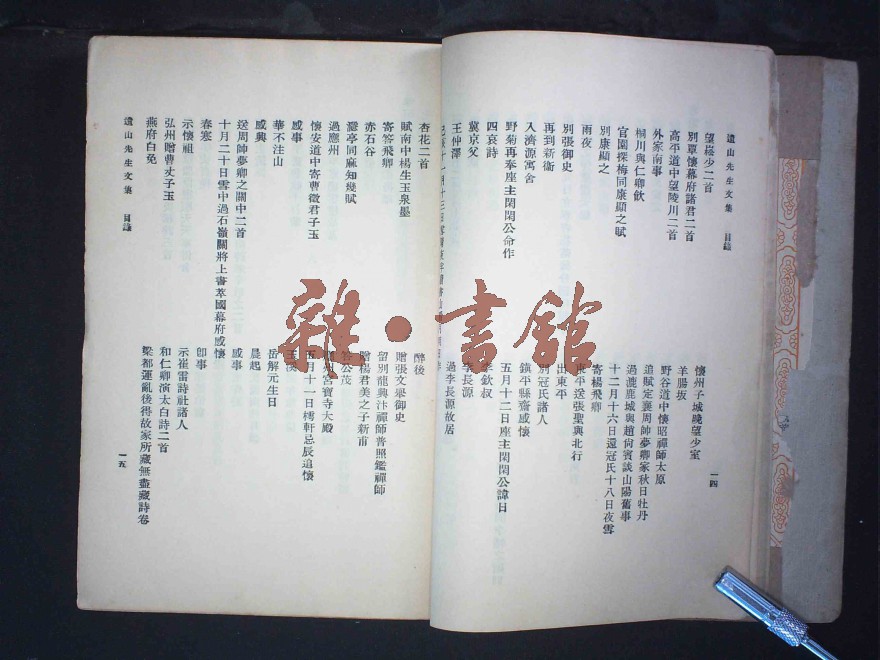 遺山先生文集 目錄
一四
望崧少二首
別覃懷幕府諸君二首
高平道中望陵川二首
外家南寺
桐川與仁卿飲
官園探梅同康顯之賦
別康顯之
雨夜
別張御史
再到新衞
入濟源寓舍
野菊再奉座主閑閑公命作
四哀詩
冀京父
王仲澤
懷州子城晚望少室
羊腸坂
野谷道中懷昭禪師太原
追賦定襄周帥夢卿家秋日牡丹
過漉鹿城與趙尚賓談山陽舊事
十二月十六日還冠氏十八日夜雪
寄楊飛卿
東平送張聖與北行
出東平
別冠氏諸人
鎮平縣齋感懷
五月十二日座主閑閑公諱日
李欽叔
李長源
過李長源故居
杏花二首
賦南中楊生玉泉墨
寄答飛卿
赤石谷
灅亭同麻知幾賦
過應州
懷安道中寄曹徵君子玉
感事
華不注山
感興
送周帥夢卿之關中二首
十月二十日雪中過石嶺關將上書萃國幕府感懷
春寒
示懷祖
弘州贈曹丈子玉
燕府白兔
醉後
贈張文舉御史
留別龍興汴禪師普照鑑禪師
贈楊君美之子新甫
答公茂
宮寶寺大殿
五月十一日樗軒忌辰追懷
玉溪
岳解元生日
晨起
感事
卽事
示崔雷詩社諸人
和仁卿演太白詩二首
梁都運亂後得故家所藏無盡藏詩卷
遺山先生文集 目錄
一五
雜·書館